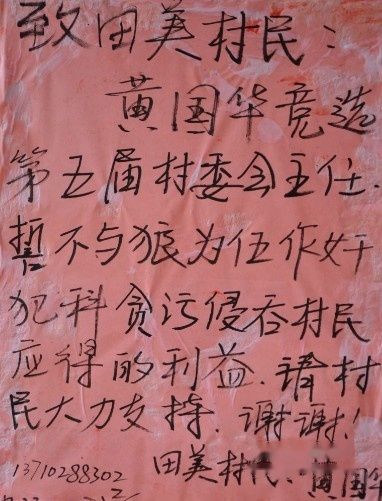 致田美村民：
黄国华竞选
第五届村委会主任.
誓不与狼为伍作奸
犯科贪污侵吞村民
应得的利益.请村
民大力支持.谢谢!
13710288302
田美村民:黄国华